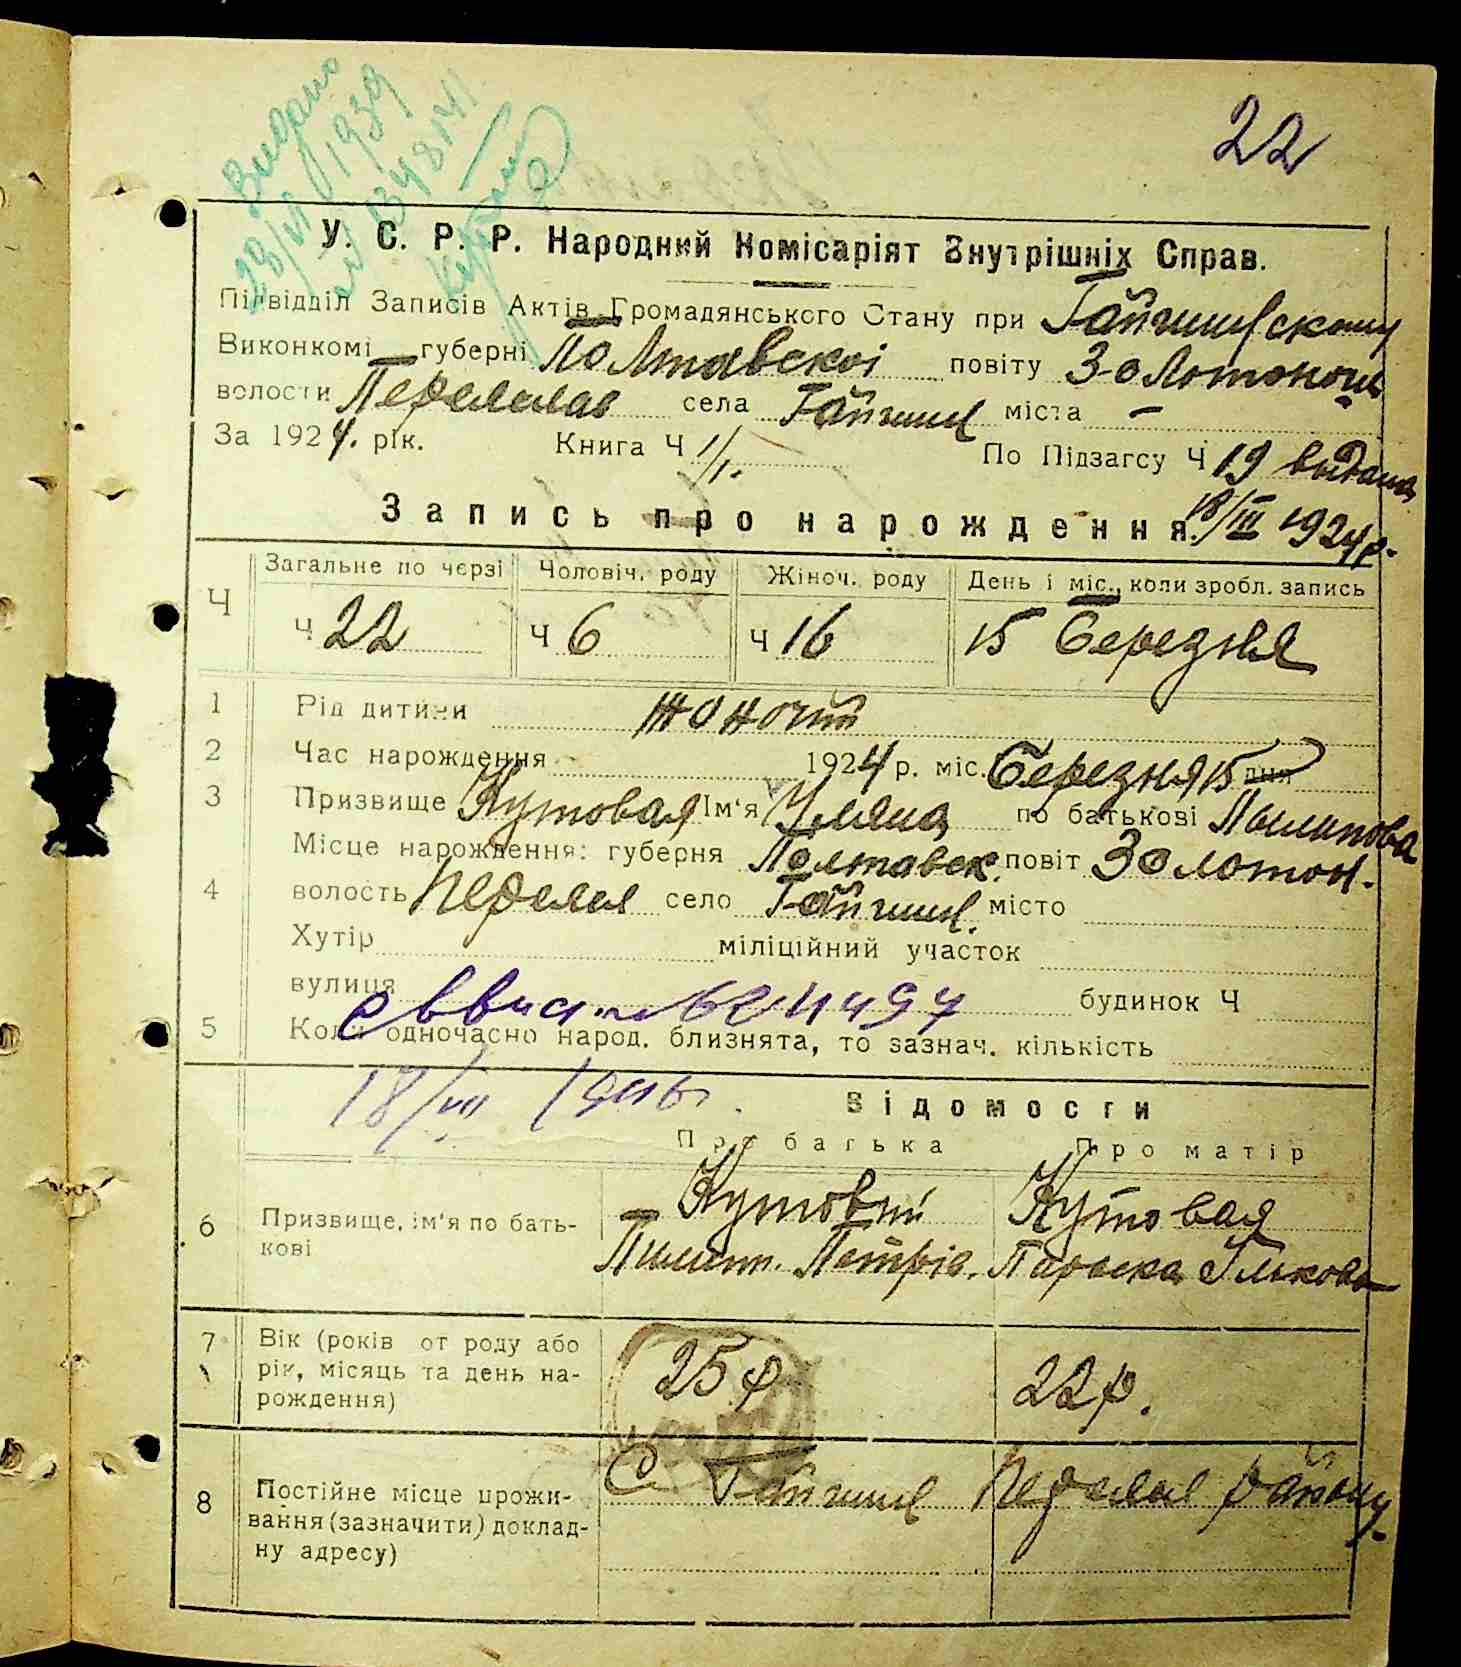 22
Видано
28/VI 1939
У. С. Р. Р. Народний Комісаріят Внутрішніх Справ.
Підвідділ Записів Актів Громадянського Стану при Гайшинскому
Виконкомі губерні Полтавскоі повіту Золотоноць
волости Переяслав села Гайшин міста —
За 1924. рік. Книга Ч 1/1. По Підзагсу Ч 19 выдана
18/III 1924р.
Запись про нарождення.
Ч Загальне по черзі Чоловіч. роду Жіноч. роду День і міс., коли зробл. запись
Ч 22 Ч 6 Ч 16 15 Березня
1 Рід дитини жоночий
2 Час нарождення 1924 р. міс. Березня 15 дня
3 Призвище Кутовая Ім'я Уляна по батькові Пылипова
Місце нарождення: губерня Полтавск. повіт Золотон.
4 волость Переясл село Гайшин. місто
Хутір міліційний участок
вулиця будинок Ч
5 Коли одночасно народ. близнята, то зазнач. кількість
18/VII 1946.
Відомости
Про батька Про матір
6 Призвище, ім'я по бать-кові Кутовий Кутовая
Пилип. Петрів. Параска Ількова
7 Вік (років от роду або рік, місяць та день на-рождення) 25 р 22 р.
8 Постійне місце прожи-вання (зазначити) доклад-ну адресу) С Гайшин Переясл району